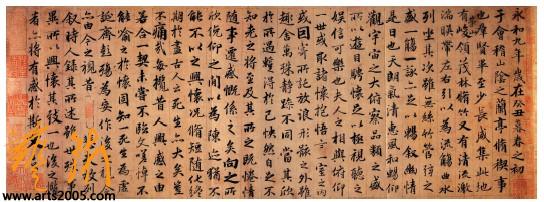 永和九年歲在癸丑暮春之初會
于會稽山陰之蘭亭脩稧事
也羣賢畢至少長咸集此地
有崇山峻領茂林脩竹又有清流激
湍暎帶左右引以為流觴曲水
列坐其次雖無絲竹管弦之
盛一觴一詠亦足以暢叙幽情
是日也天朗氣清惠風和暢仰
觀宇宙之大俯察品類之盛
所以遊目騁懷足以極視聽之
娛信可樂也夫人之相與俯仰
一世或取諸懷抱悟言一室之內
或因寄所託放浪形骸之外雖
趣舍萬殊靜躁不同當其欣
於所遇暫得於己怏然自足不
知老之將至及其所之既惓情
隨事遷感慨係之矣向之所
欣俛仰之閒以為陳迹猶不
能不以之興懷況脩短隨化終
期於盡古人云死生亦大矣豈
不痛哉每攬昔人興感之由
若合一契未嘗不臨文嗟悼不
能喻之於懷固知一死生為虛
誕齊彭殤為妄作後之視今
亦由今之視昔悲夫故列
叙時人錄其所述雖世殊事
異所以興懷其致一也後之攬
者亦將有感於斯文
www.arts2005.com